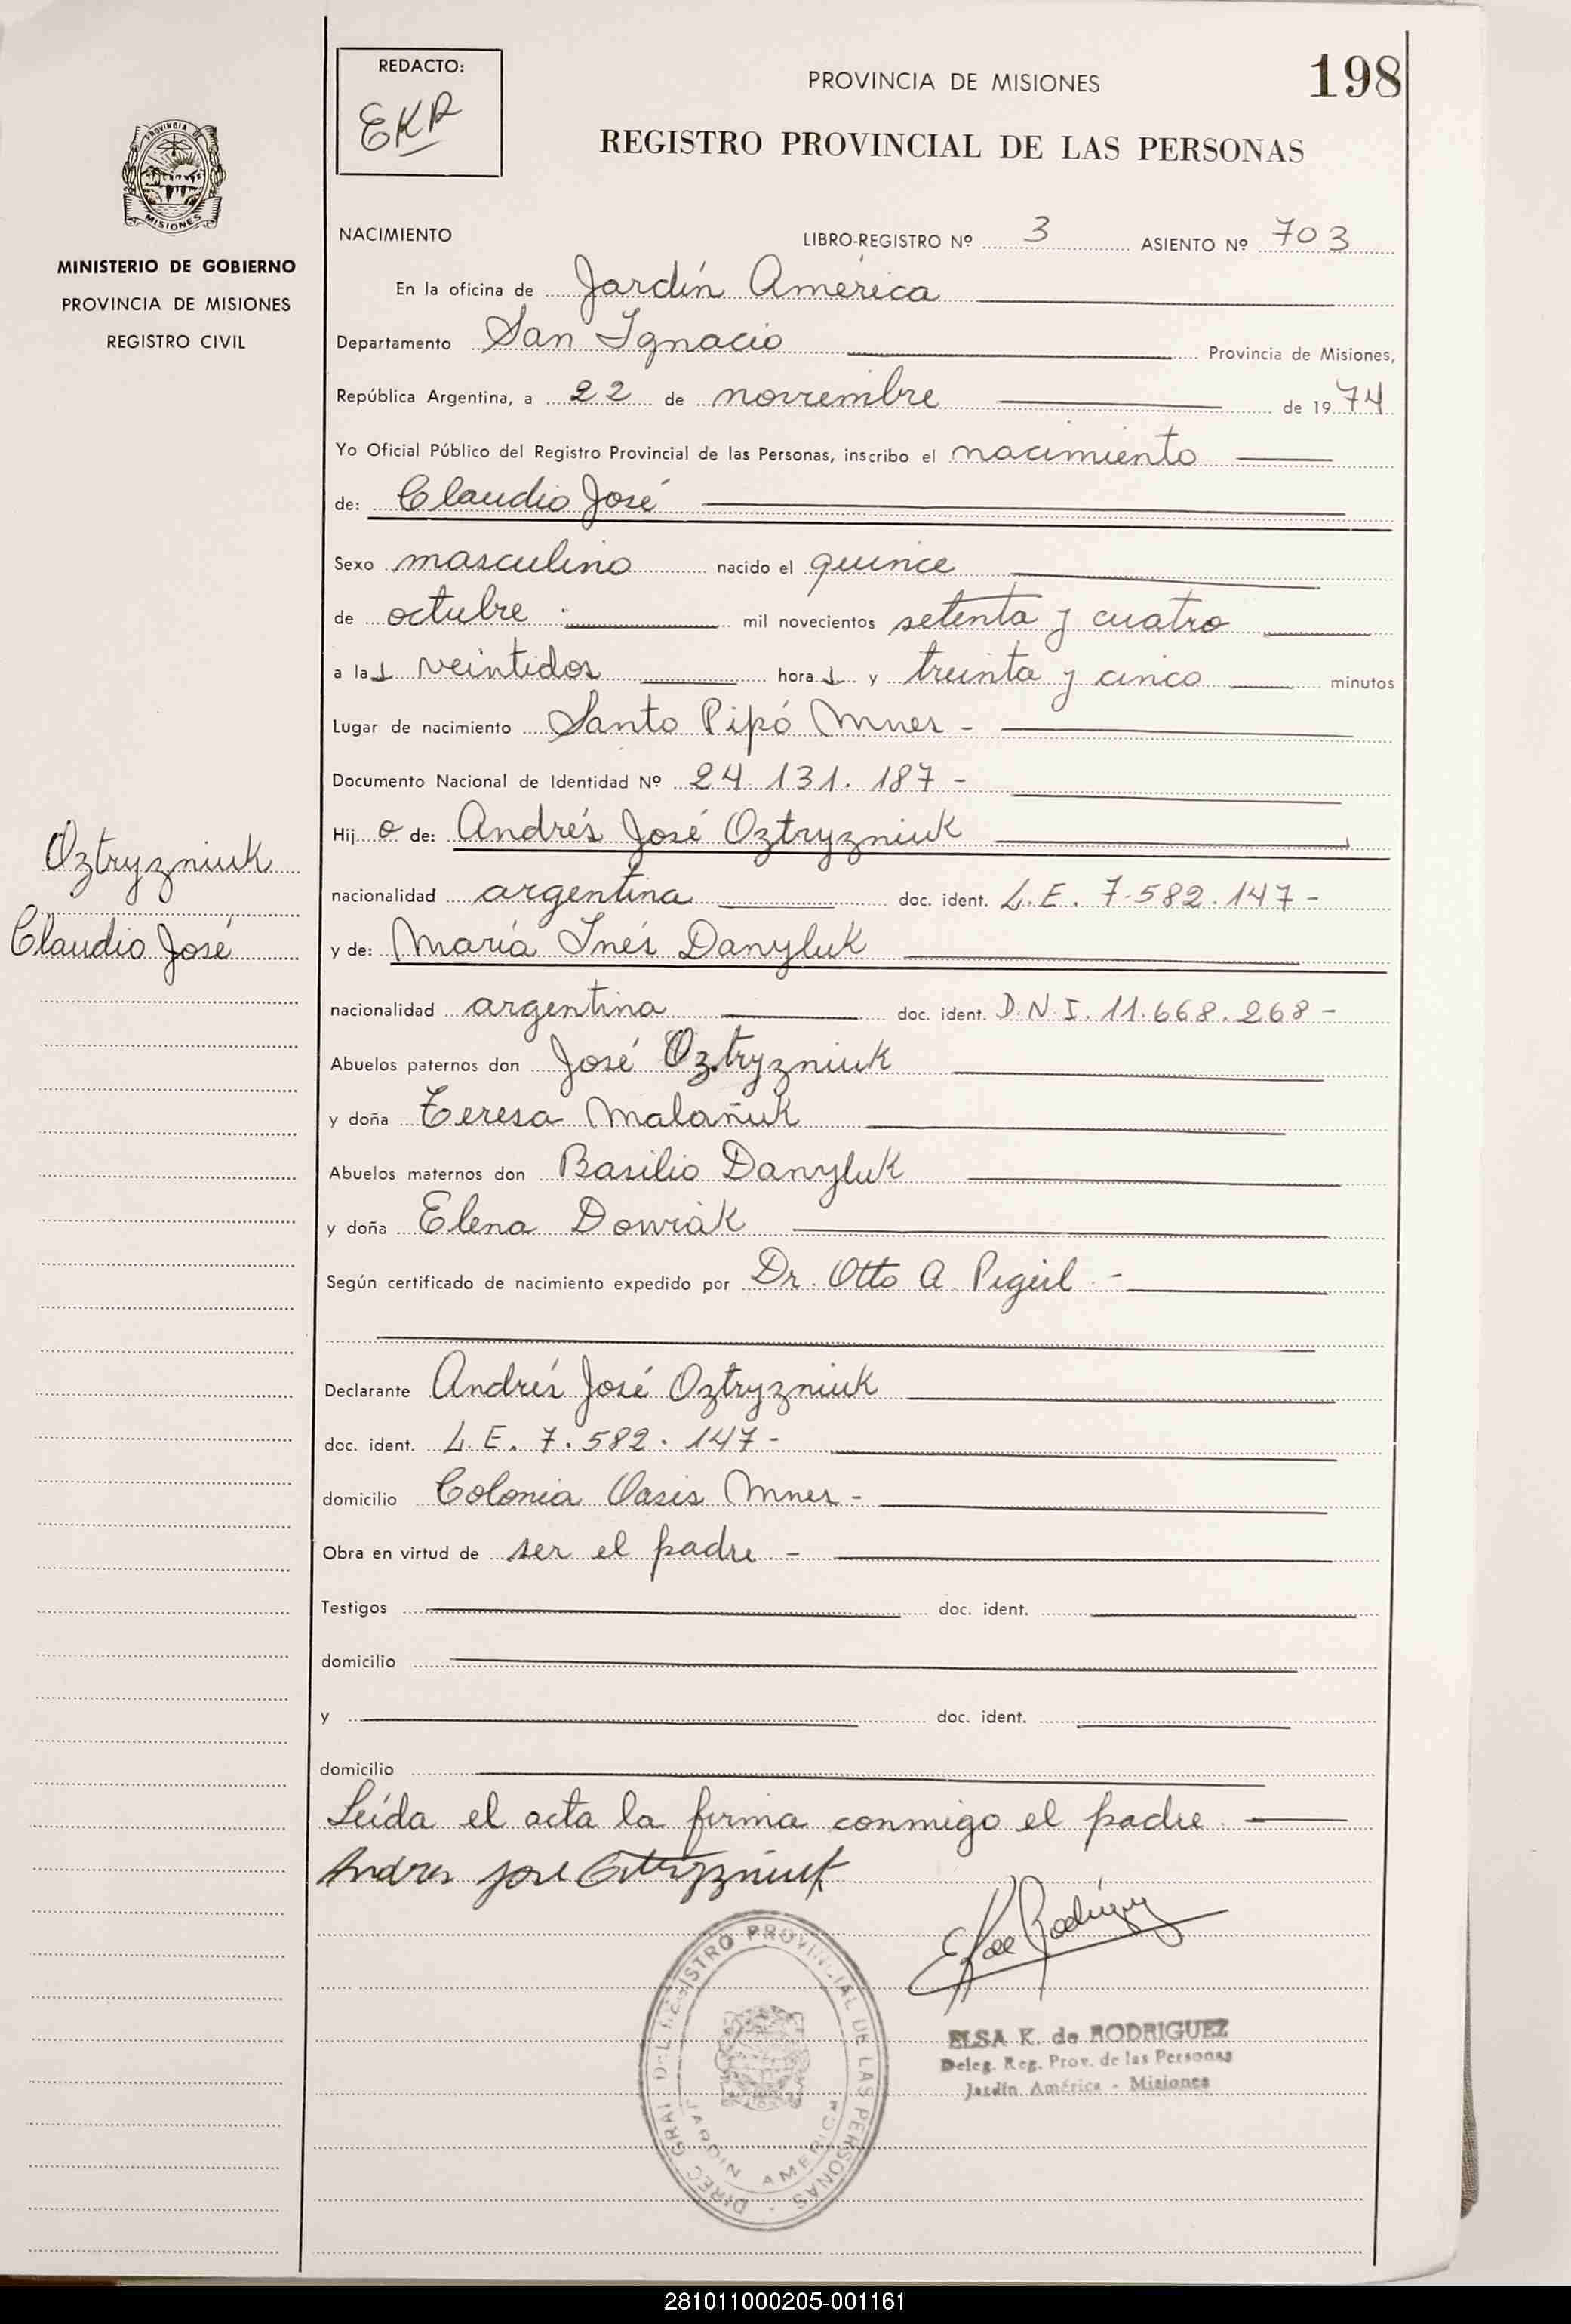 REDACTO:
EKR
PROVINCIA DE MISIONES
198
REGISTRO PROVINCIAL DE LAS PERSONAS
PROVINCIA DE
MISIONES
MINISTERIO DE GOBIERNO
PROVINCIA DE MISIONES
REGISTRO CIVIL
NACIMIENTO LIBRO-REGISTRO Nº 3 ASIENTO Nº 703
En la oficina de Jardín América
Departamento San Ignacio Provincia de Misiones,
República Argentina, a 22 de noviembre de 1974
Yo Oficial Público del Registro Provincial de las Personas, inscribo el nacimiento
de: Claudio José
Sexo masculino nacido el quince
de octubre mil novecientos setenta y cuatro
a las veintidos horas y treinta y cinco minutos
Lugar de nacimiento Santo Pipó Mnes -
Documento Nacional de Identidad Nº 24.131.187 -
Hijo de: Andrés José Oztryzniuk
Oztryzniuk
Claudio José
nacionalidad argentina doc. ident. L.E. 7.582.147 -
y de: María Inés Danyluk
nacionalidad argentina doc. ident. D.N.I. 11.668.268 -
Abuelos paternos don José Oztryzniuk
y doña Teresa Malañuk
Abuelos maternos don Basilio Danyluk
y doña Elena Dowrak
Según certificado de nacimiento expedido por Dr. Otto A.
Declarante Andrés José Oztryzniuk
doc. ident. L.E. 7.582.147 -
domicilio Colonia Oasis Mnes -
Obra en virtud de ser el padre -
Testigos doc. ident.
domicilio
y doc. ident.
domicilio
Leída el acta la firma conmigo el padre
Andres Jose
E K de Rodriguez
DIREC. GRAL. DEL REGISTRO PROVINCIAL DE LAS PERSONAS
JARDIN AMERICA
ELSA K. de RODRIGUEZ
Deleg. Reg. Prov. de las Personas
Jardín América - Misiones
281011000205-001161